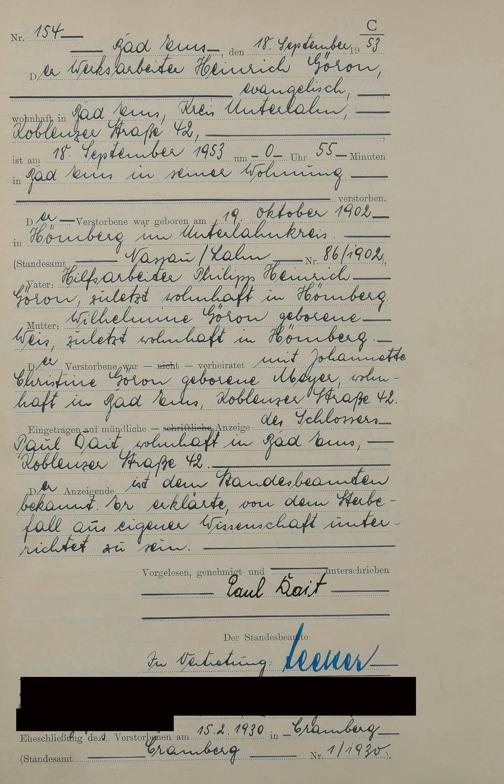 C
Nr. 154
Bad Ems, den 18. September 1953
Der Werksarbeiter Heinrich Göron,
evangelisch,
wohnhaft in Bad Ems, Kreis Unterlahn,
Koblenzer Straße 42,
ist am 18. September 1953 um 0 Uhr 55 Minuten
in Bad Ems in seiner Wohnung
verstorben.
Der Verstorbene war geboren am 19. Oktober 1902
in Hömberg im Unterlahnkreis.
(Standesamt Nassau/Lahn Nr. 86/1902).
Vater: Hilfsarbeiter Philipp Heinrich
Göron, zuletzt wohnhaft in Hömberg.
Mutter: Wilhelmine Göron geborene
Weis, zuletzt wohnhaft in Hömberg.
Der Verstorbene war — nicht — verheiratet mit Johannette
Christine Göron geborene Meyer, wohn-
haft in Bad Ems, Koblenzer Straße 42.
Eingetragen auf mündliche — schriftliche Anzeige des Schlossers
Paul wohnhaft in Bad Ems,
Koblenzer Straße 42.
Der Anzeigende ist dem Standesbeamten
bekannt. Er erklärte, von dem Sterbe-
fall aus eigener Wissenschaft unter-
richtet zu sein.
Vorgelesen, genehmigt und unterschrieben
Paul
Der Standesbeamte
In Vertretung:
Eheschließung des Verstorbenen am 15.2.1930 in Cramberg
(Standesamt Cramberg Nr. 1/1930).